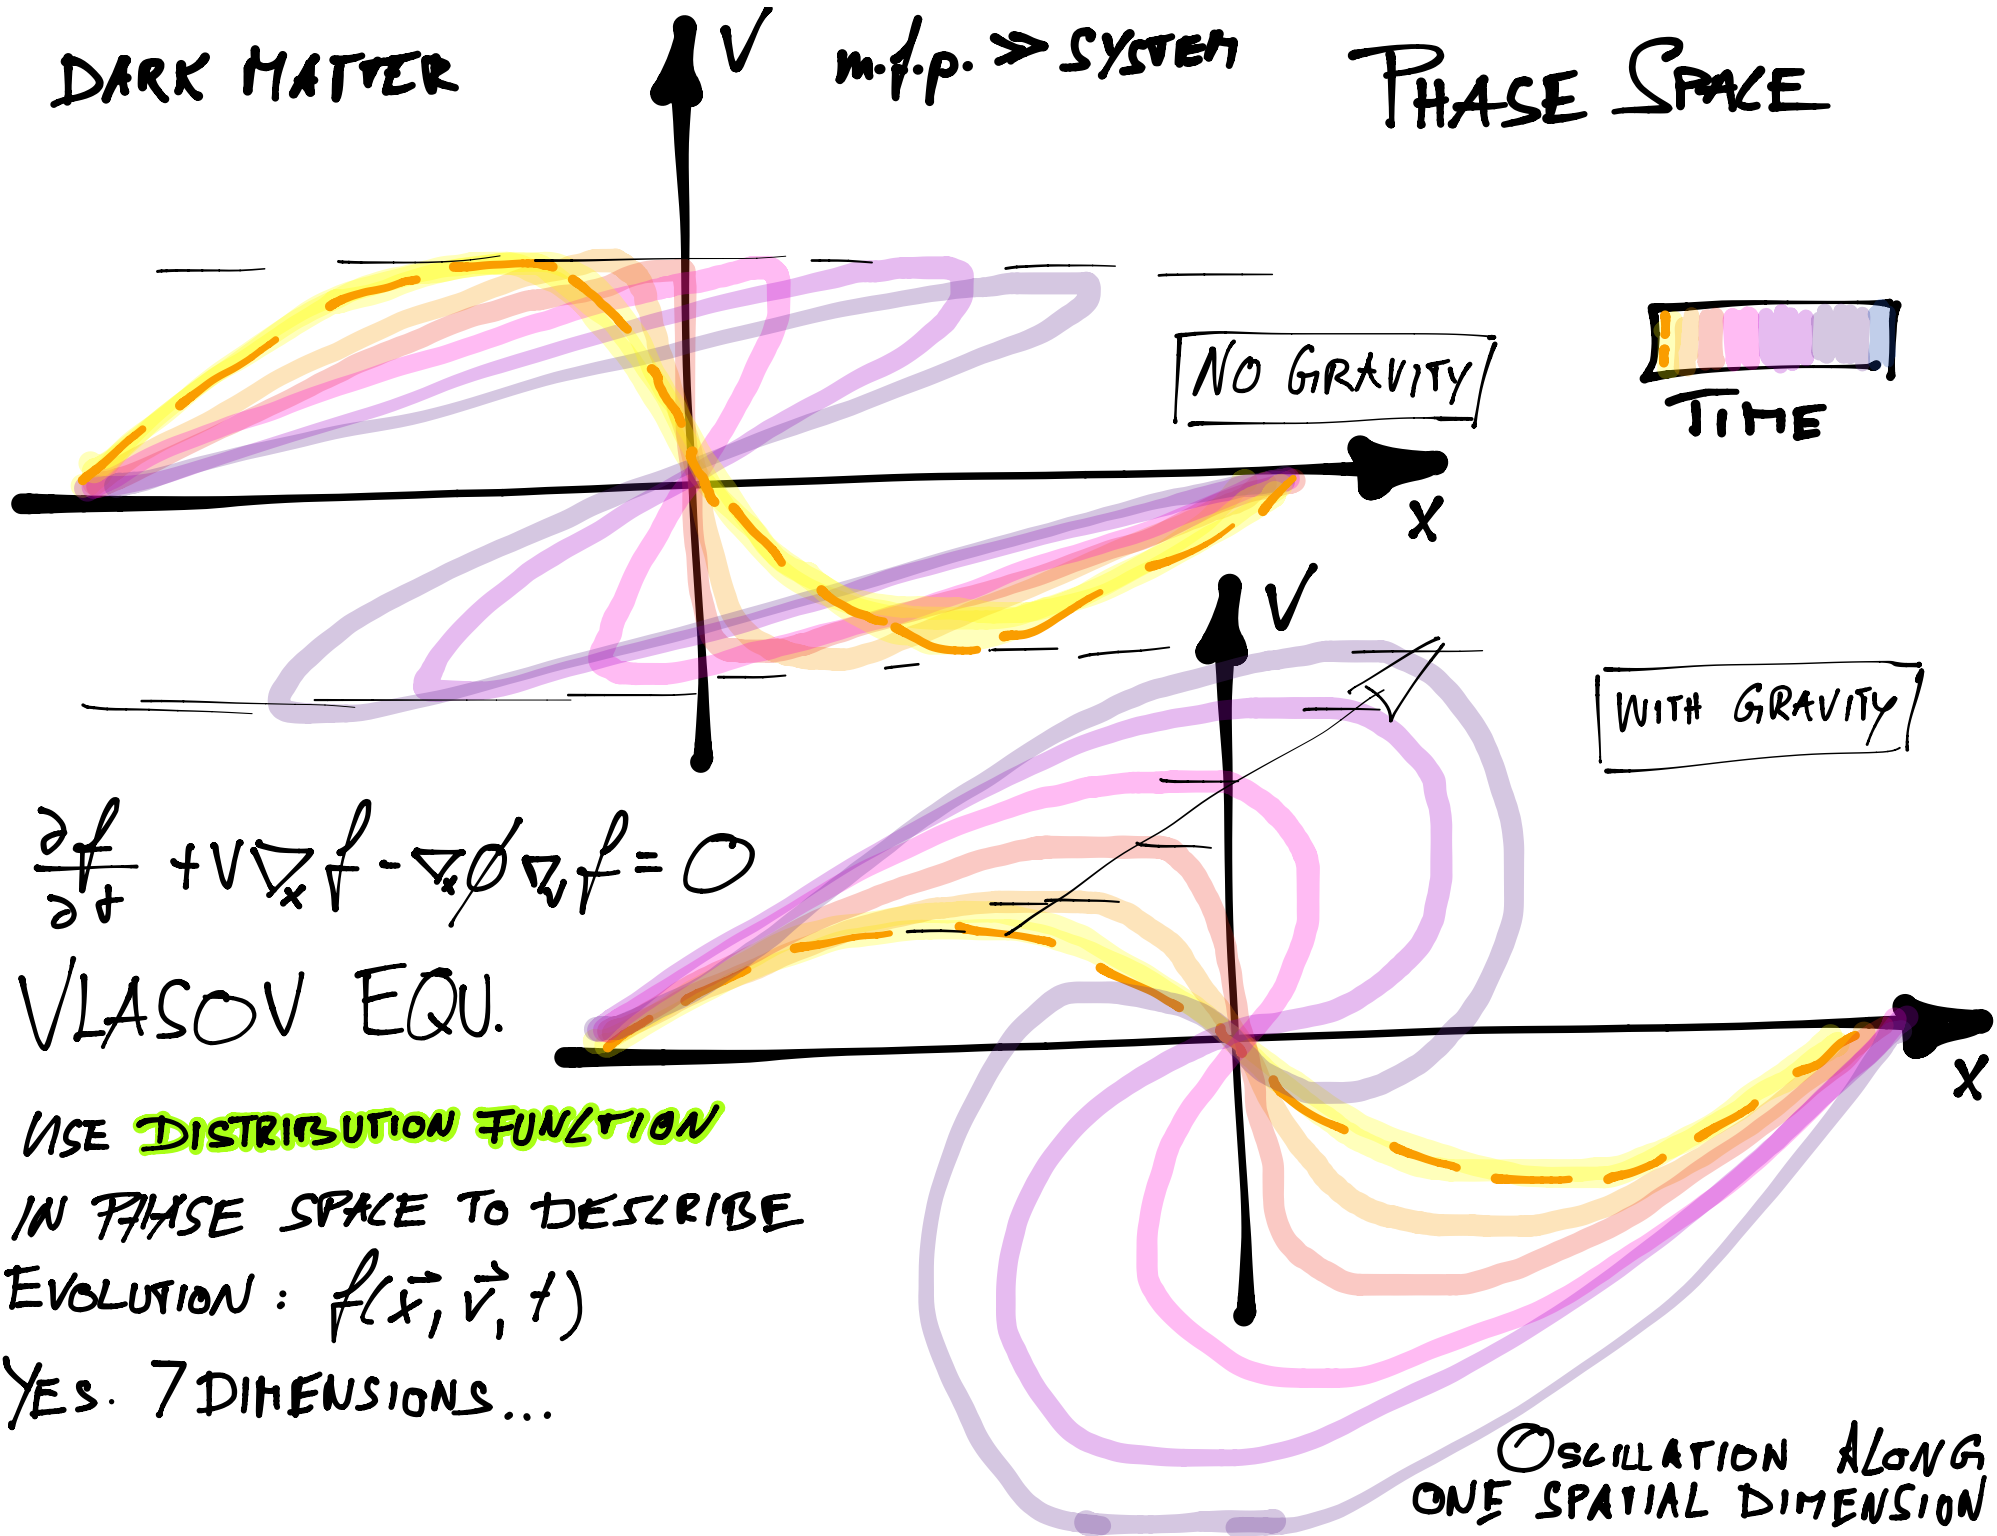 DARK MATTER
V
m.f.p. ≫ SYSTEM
PHASE SPACE
NO GRAVITY
TIME
X
V
WITH GRAVITY
∂f/∂t + V∇ₓf - ∇ₓϕ∇ᵥf = 0
VLASOV EQU.
X
USE DISTRIBUTION FUNCTION
IN PHASE SPACE TO DESCRIBE
EVOLUTION: f(x⃗, v⃗, t)
YES. 7 DIMENSIONS...
OSCILLATION ALONG
ONE SPATIAL DIMENSION